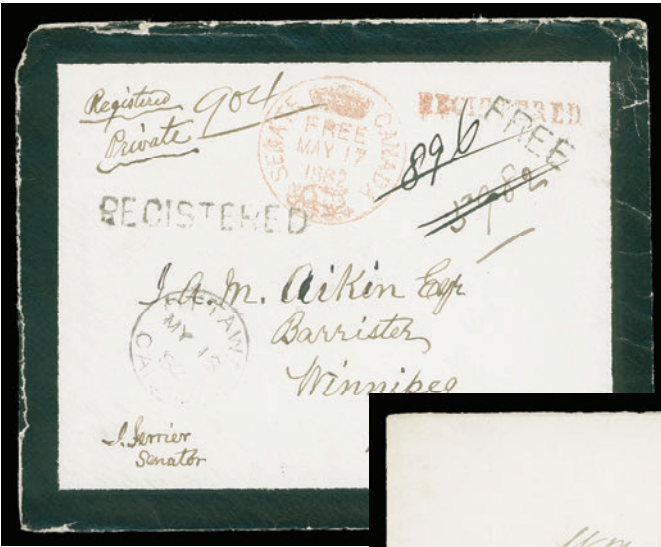 Registered 904
Private
SENATE CANADA
FREE
MAY 17
1882
REGISTERED
FREE
896
REGISTERED
J.A.M. Aikin Esqr
Barrister
Winnipeg
OTTAWA
MY 18
CA
J. Ferrier
Senator